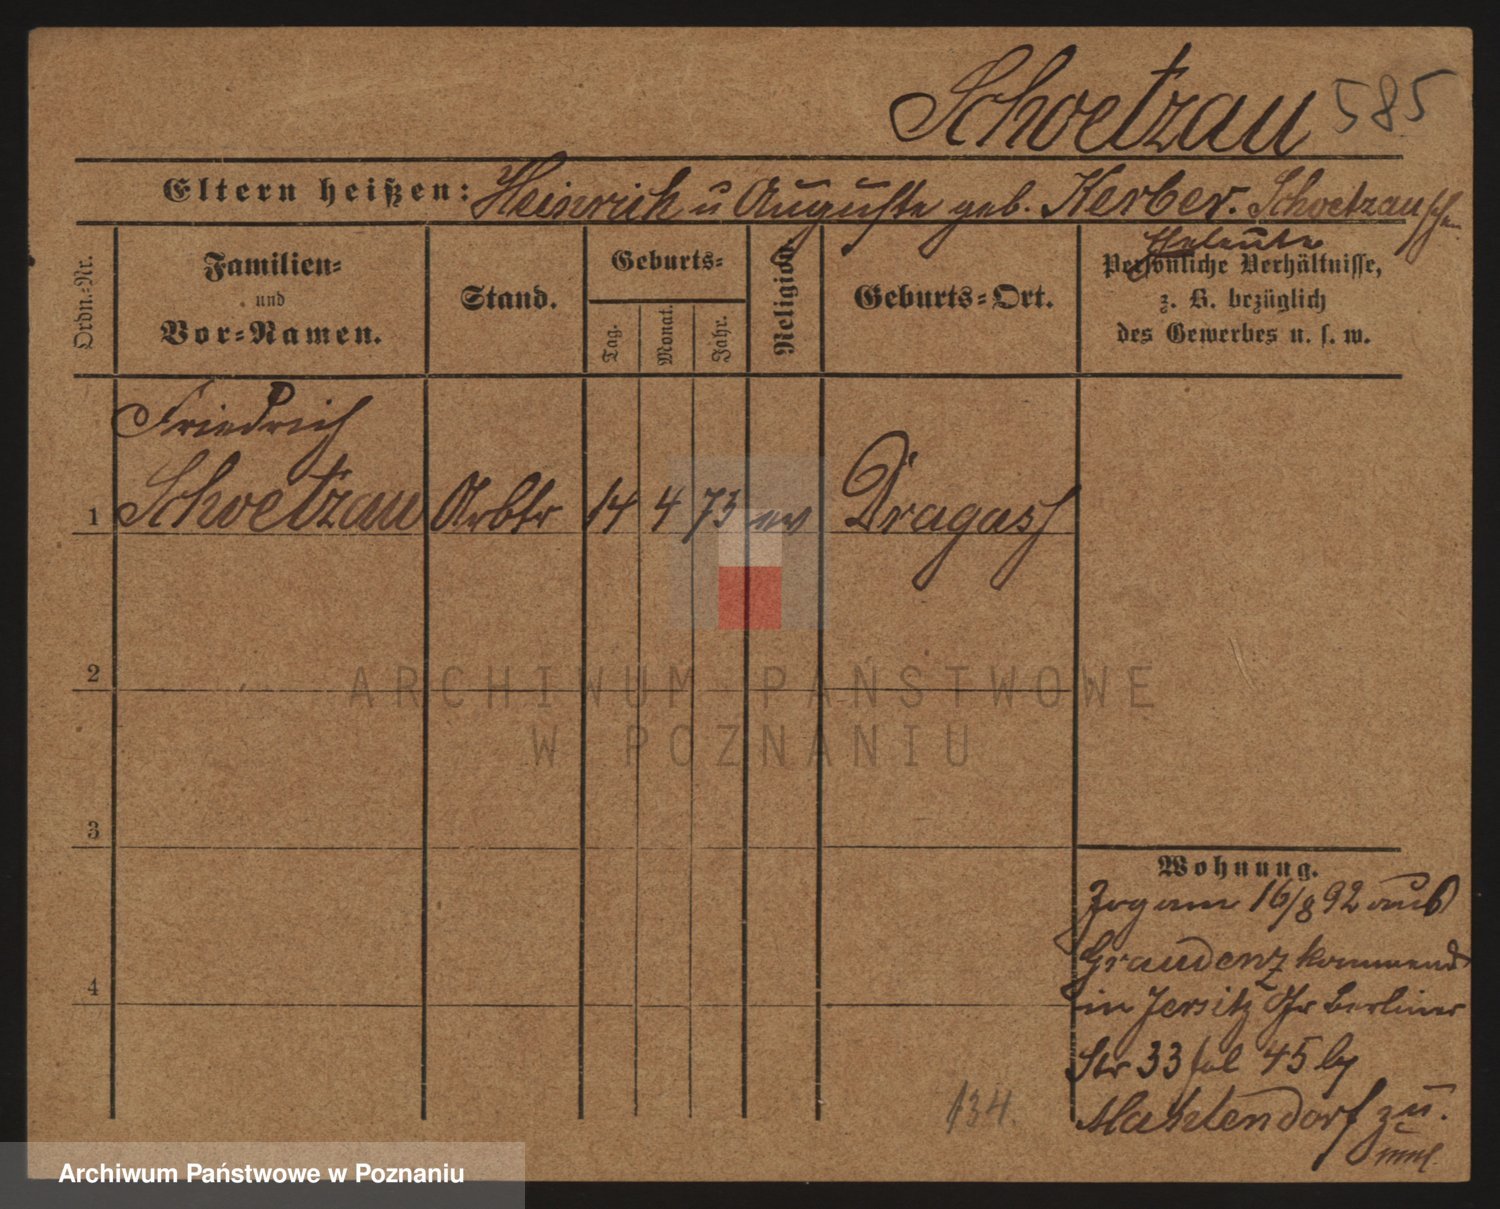 Schoetzau 585
Eltern heißen: Heinrich u Auguste geb. Kerber. Schoetzau schen
Eheleute
Ordn.-Nr.
Familien-
und
Vor-Namen.
Stand.
Geburts-
Tag.
Monat.
Jahr.
Religion.
Geburts-Ort.
Persönliche Verhältnisse,
z. B. bezüglich
des Gewerbes u. s. w.
Friedrich
1 Schoetzau Arbtr 14 4 73 ev Dragass
2
ARCHIWUM PAŃSTWOWE
W POZNANIU
3
4
Wohnung.
Zog am 16/8 92 aus
Graudenz kommend
in Jersitz Gr Berliner
Str 33 fol 45 by
zu.
134.
Archiwum Państwowe w Poznaniu